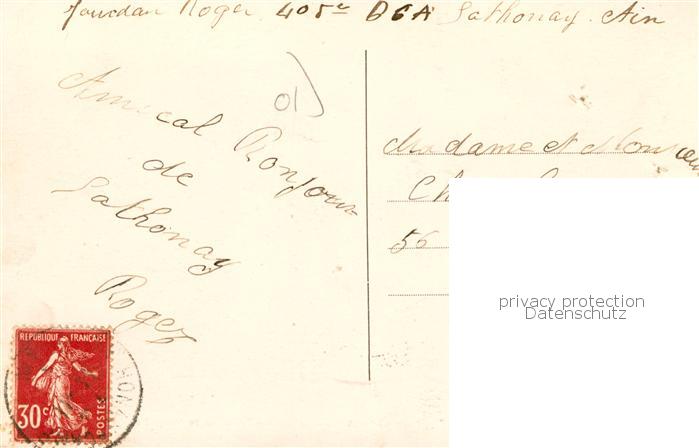 Jourdan Roger 405e DCA Sathonay. Ain
Amical Bonjour
de
Sathonay
Roger
Madame et Monsieur
56
privacy protection
Datenschutz
REPUBLIQUE FRANÇAISE
30c
POSTES